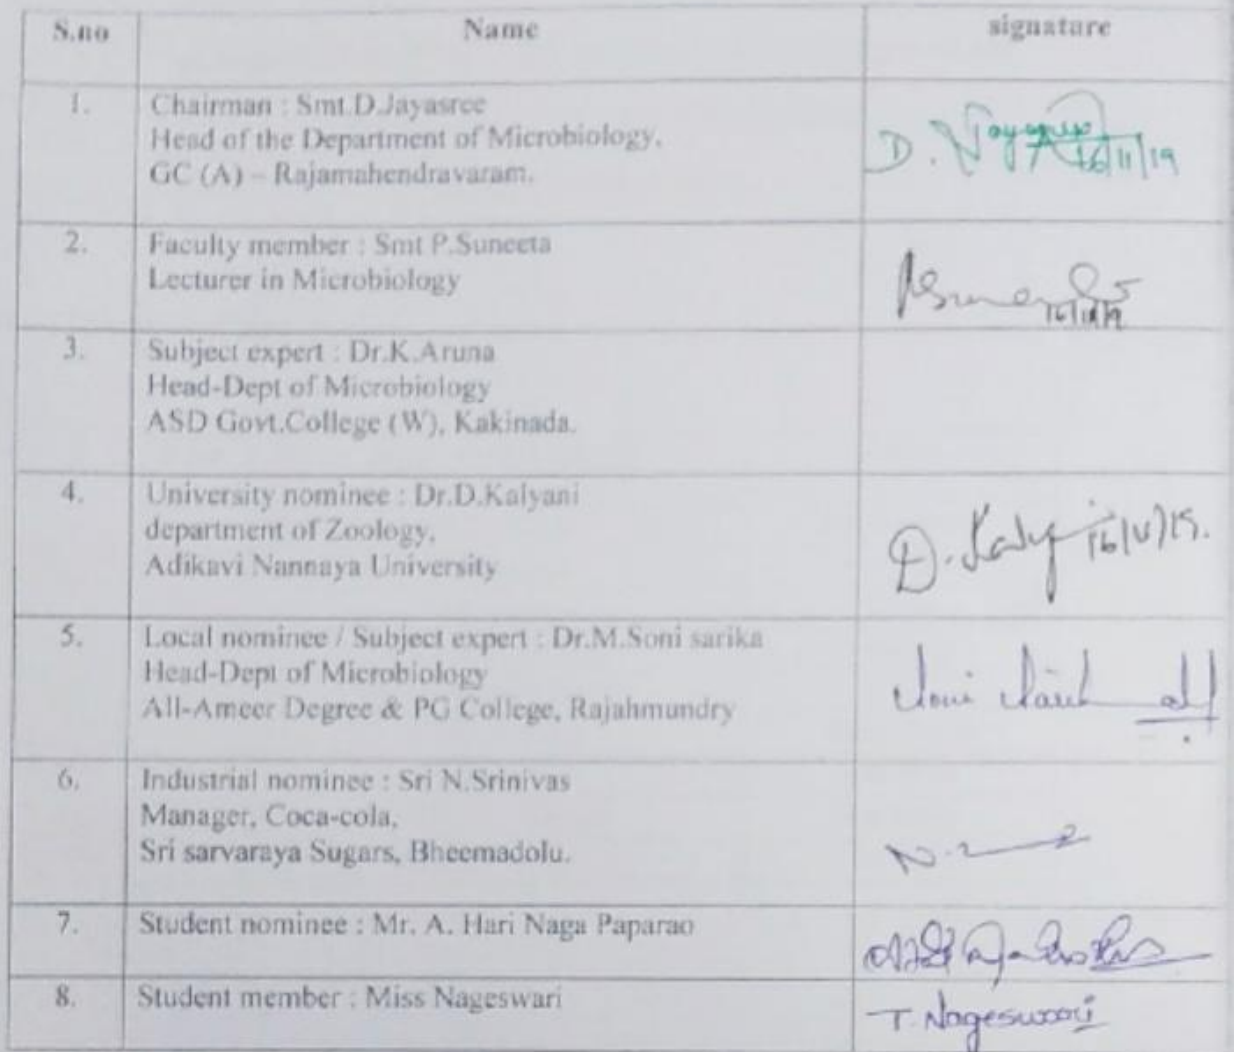 S.no Name signature
1. Chairman : Smt.D.Jayasree
Head of the Department of Microbiology,
GC (A) – Rajamahendravaram.
D. Jayasree
16/11/19
2. Faculty member : Smt P.Suneeta
Lecturer in Microbiology
16/11/19
3. Subject expert : Dr.K.Aruna
Head-Dept of Microbiology
ASD Govt.College (W), Kakinada.
4. University nominee : Dr.D.Kalyani
department of Zoology,
Adikavi Nannaya University
D. Kaly 16/11/19.
5. Local nominee / Subject expert : Dr.M.Soni sarika
Head-Dept of Microbiology
All-Ameer Degree & PG College, Rajahmundry
6. Industrial nominee : Sri N.Srinivas
Manager, Coca-cola,
Sri sarvaraya Sugars, Bheemadolu.
7. Student nominee : Mr. A. Hari Naga Paparao
8. Student member : Miss Nageswari
T. Nageswari